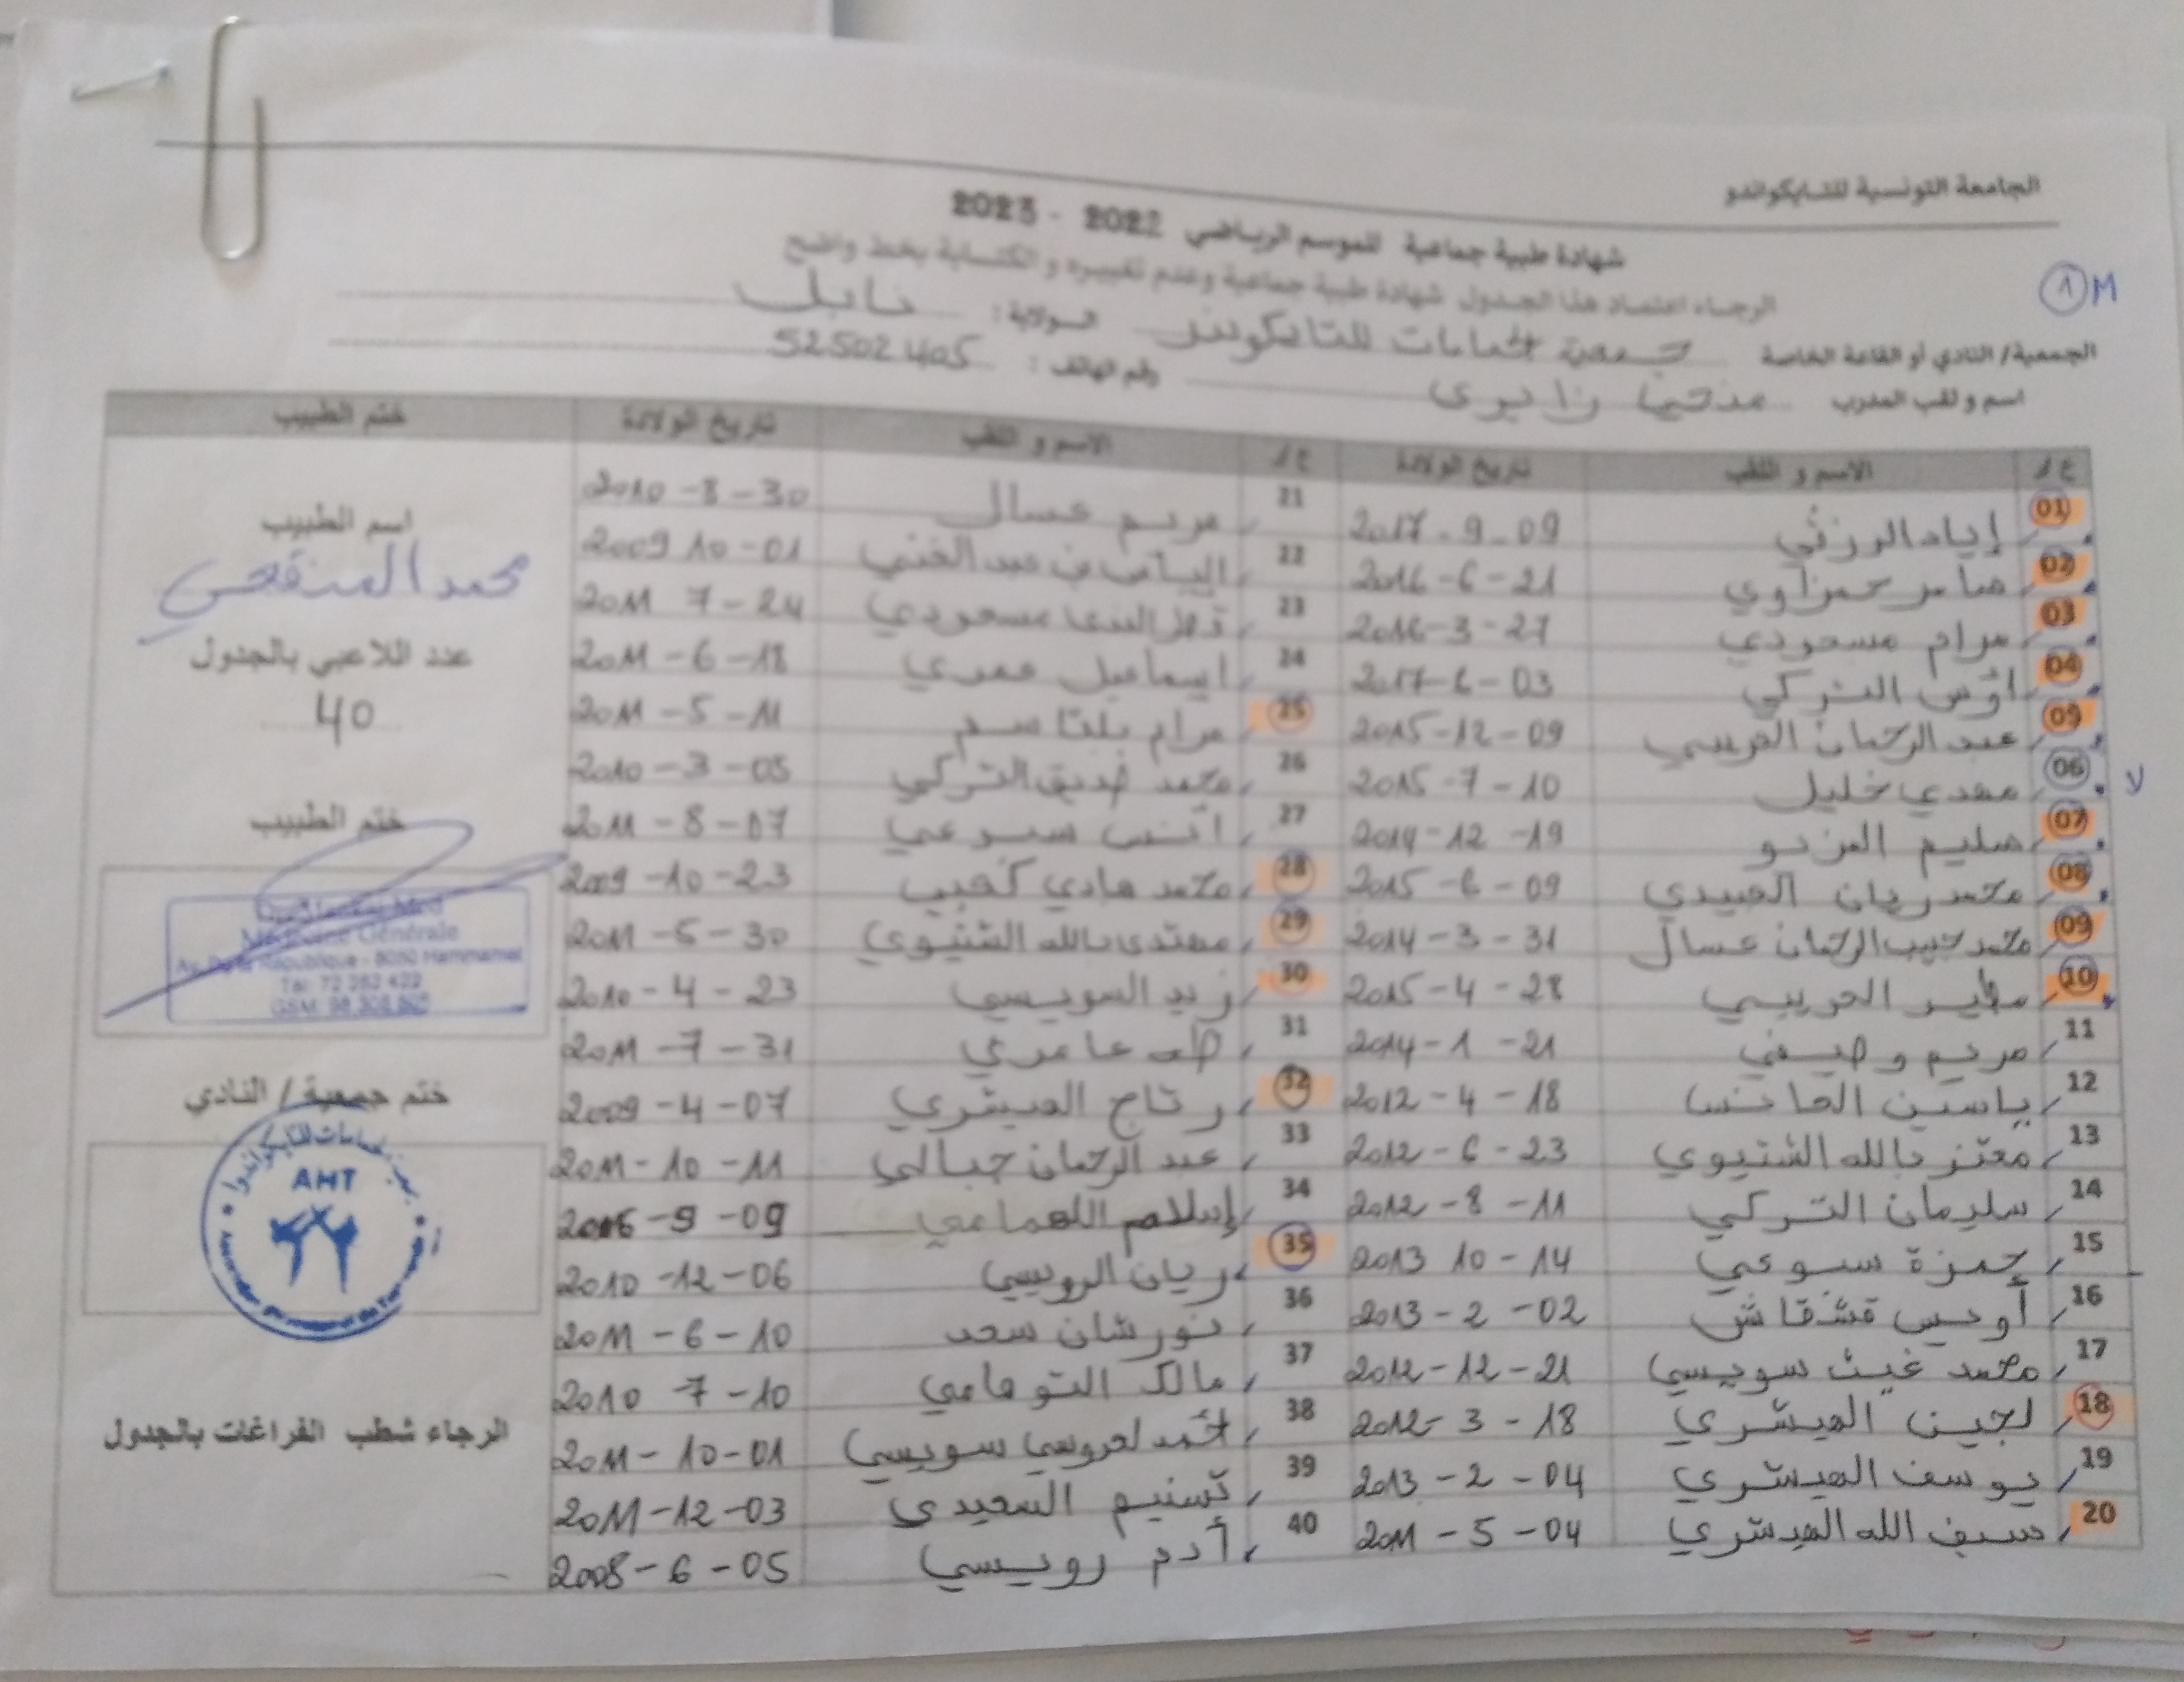 الجامعة التونسية للتايكواندو
شهادة طبية جماعية للموسم الرياضي 2022 - 2023
الرجاء اعتماد هذا الجدول شهادة طبية جماعية وعدم تغييره و الكتابة بخط واضح
1 M
الجمعية/ النادي أو القاعة الخاصة جمعية الحمامات للتايكوندو الولاية : نابل
اسم و لقب المدرب رقم الهاتف : 52502405
ع / الاسم و اللقب تاريخ الولادة ع / الاسم و اللقب تاريخ الولادة ختم الطبيب
01 إياد الورثي 2017-9-09
02 سامر حمزاوي 2016-6-21
03 مرام مسعودي 2016-3-27
04 أوس التركي 2017-6-03
05 عبد الرحمان 2015-12-09
06 مهدي خليل 2015-7-10
لا
07 سليم 2014-12-19
08 محمد ريان العبيدي 2015-6-09
09 محمد حبيب الرحمان عسال 2014-3-31
10 2015-4-28
11 مريم وصيفي 2014-1-21
12 ياسين 2012-4-18
13 معتز بالله الشتيوي 2012-6-23
14 سليمان التركي 2012-8-11
15 حمزة سبوعي 2013 10-14
16 أويس قشقاش 2013-2-02
17 محمد غيث سويسي 2012-12-21
18 لجين الهيشري 2012-3-18
19 يوسف الهيشري 2013-2-04
20 سيف الله الهيشري 2011-5-04
21 مريم عسال 2010-8-30
22 الياس بن عبد الغني 2009 10-01
23 قطر الندى مسعودي 2011 7-24
24 اسماعيل عمري 2011-6-18
25 مرام بلقاسم 2011-5-11
26 محمد صديق التركي 2010-3-05
27 أنس سبوعي 2011-8-07
28 محمد هادي كعبي 2009-10-23
29 مهتدي بالله الشتيوي 2011-5-30
30 زيد السويسي 2010-4-23
31 طه عامري 2011-7-31
32 رتاج الهيشري 2009-4-07
33 عبد الرحمان جبالي 2011-10-11
34 إسلام 2006-9-09
35 ريان الرويسي 2010-12-06
36 نورشان سعد 2011-6-10
37 مالك التوهامي 2010 7-10
38 أحمد لعروسي سويسي 2011-10-01
39 تسنيم السعيدي 2011-12-03
40 أدم رويسي 2008-6-05
اسم الطبيب
محمد
عدد اللاعبي بالجدول
40
ختم الطبيب
Médecine Générale
Av. de la République - 8050 Hammamet
Tél: 72 262 422
ختم جمعية / النادي
AHT
الرجاء شطب الفراغات بالجدول